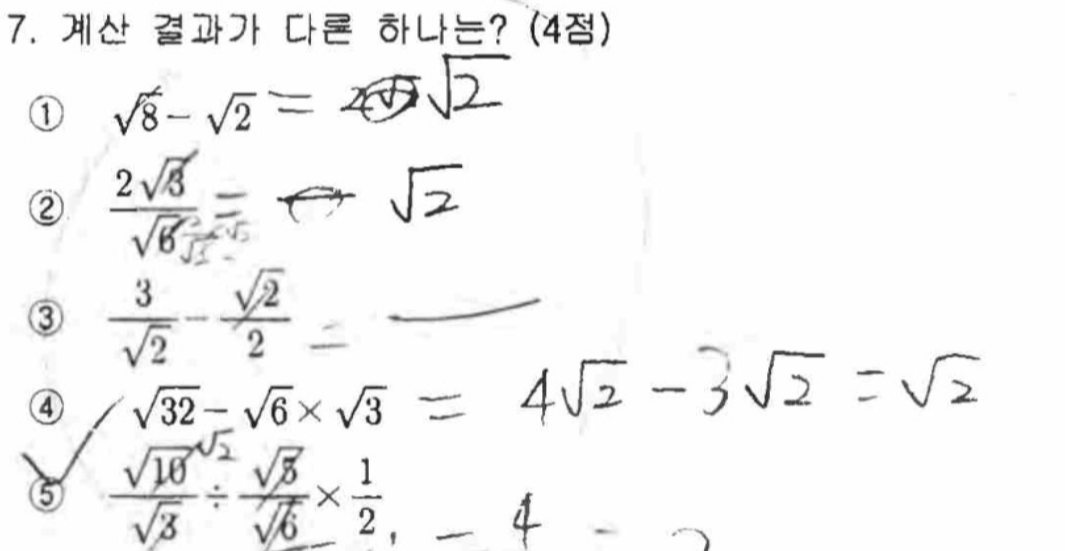 7. 계산 결과가 다른 하나는? (4점)
① √8 - √2 = √2
② 2√3/√6 = √2
③ 3/√2 - √2/2 =
④ √32 - √6 × √3 = 4√2 - 3√2 = √2
⑤ √10/√3 ÷ √5/√6 × 1/2